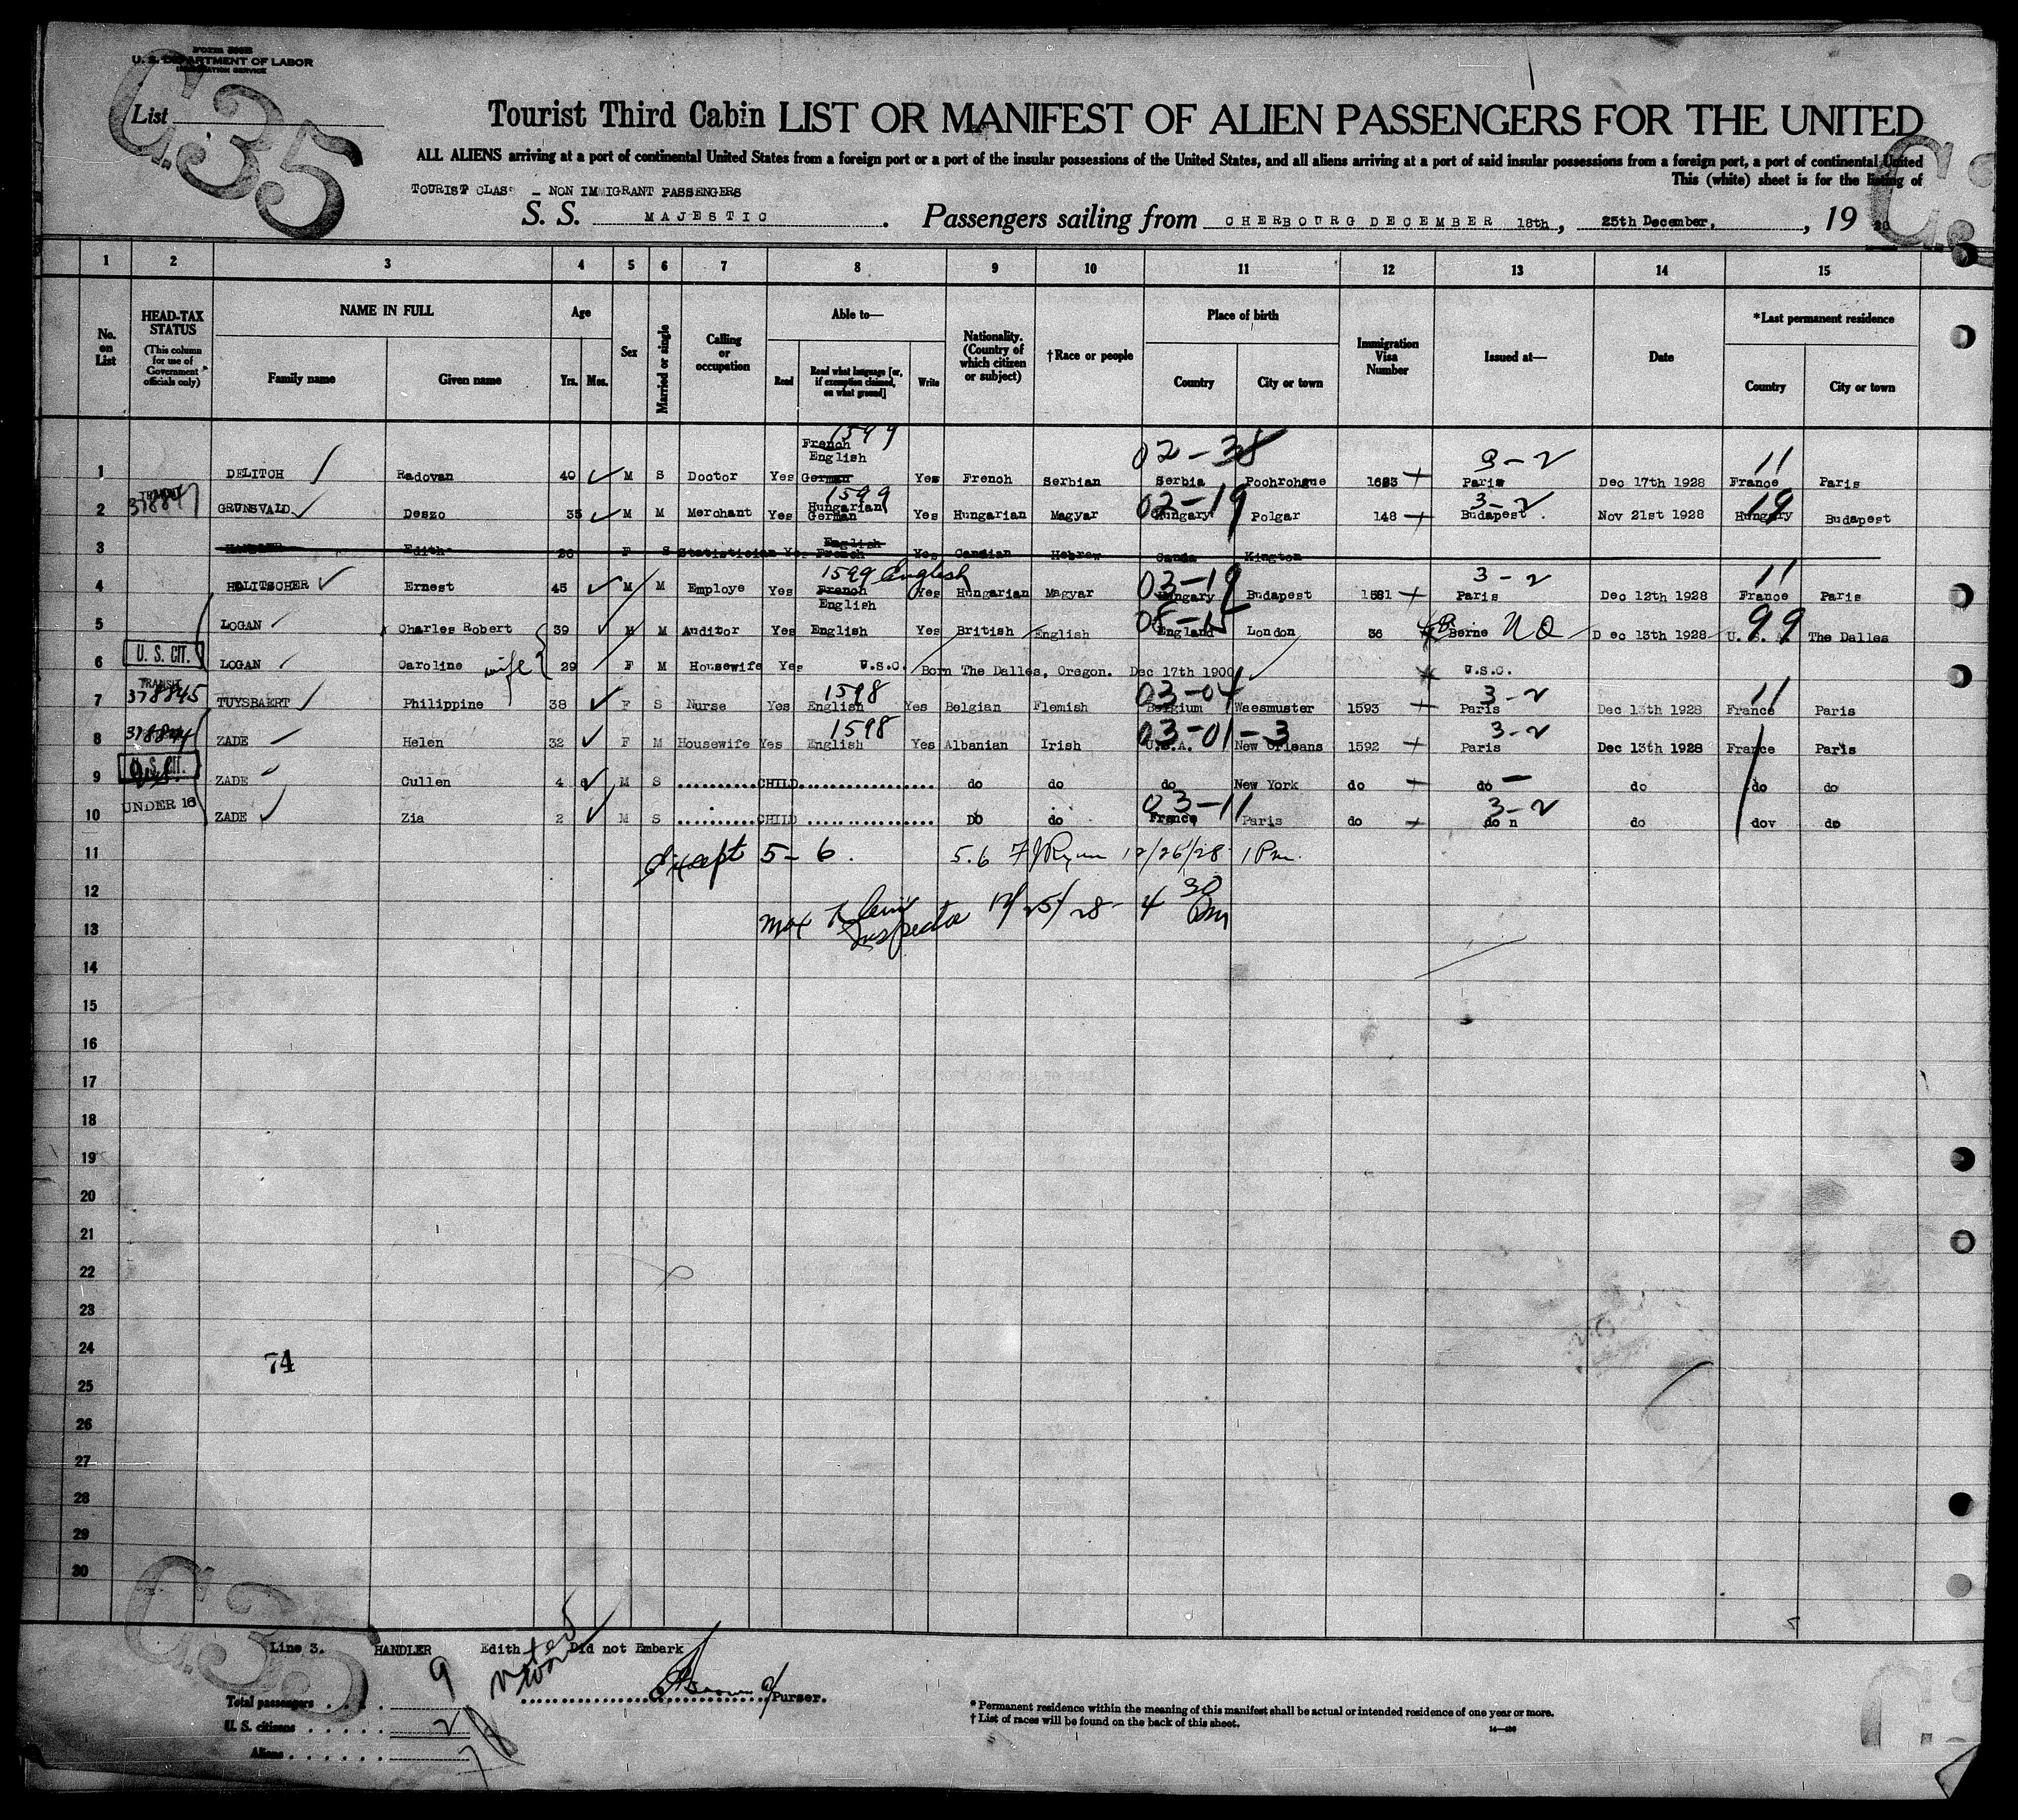 Form 500B
U. S. DEPARTMENT OF LABOR
IMMIGRATION SERVICE
C.35
List
Tourist Third Cabin LIST OR MANIFEST OF ALIEN PASSENGERS FOR THE UNITED
ALL ALIENS arriving at a port of continental United States from a foreign port or a port of the insular possessions of the United States, and all aliens arriving at a port of said insular possessions from a foreign port, a port of continental United
This (white) sheet is for the listing of
TOURIST CLASS - NON IMMIGRANT PASSENGERS
S. S. MAJESTIC. Passengers sailing from CHERBOURG DECEMBER 18th, 25th December, , 19
1 2 3 4 5 6 7 8 9 10 11 12 13 14 15
No. on List
HEAD-TAX STATUS (This column for use of Government officials only)
NAME IN FULL Family name Given name
Age Yrs. Mos.
Sex
Married or single
Calling or occupation
Able to— Read Read what language [or, if exemption claimed, on what ground] Write
Nationality. (Country of which citizen or subject)
†Race or people
Place of birth Country City or town
Immigration Visa Number
Issued at—
Date
*Last permanent residence Country City or town
1599 02-38 3-2 11
French
English
1 DELITCH Radovan 40 M S Doctor Yes German Yes French Serbian Serbia Pochrohgue 1623 Paris Dec 17th 1928 France Paris
TRANSIT 378847 1599 02-19 3-2 19
2 GRUNSVALD Deszo 35 M M Merchant Yes Hungarian German Yes Hungarian Magyar Hungary Polgar 148 Budapest. Nov 21st 1928 Hungary Budapest
3 HANDLER Edith 26 F S Statistician Yes English French Yes Candian Hebrew Canda Kington
1599 English 03-19 3-2 11
4 HOLITSCHER Ernest 45 M M Employe Yes French English Yes Hungarian Magyar Hungary Budapest 1581 Paris Dec 12th 1928 France Paris
05-15 NQ 99
5 LOGAN Charles Robert 39 M M Auditor Yes English Yes British English England London 36 Berne Dec 13th 1928 U. S. A. The Dalles
U. S. CIT.
6 LOGAN Caroline wife 29 F M Housewife Yes U.S.C. Born The Dalles, Oregon. Dec 17th 1900 U.S.C.
TRANSIT 378845 1598 03-04 3-2 11
7 TUYSBAERT Philippine 38 F S Nurse Yes English Yes Belgian Flemish Belgium Waesmuster 1593 Paris Dec 13th 1928 France Paris
378844 1598 03-01-3 3-2
8 ZADE Helen 32 F M Housewife Yes English Yes Albanian Irish U.S.A. New Orleans 1592 Paris Dec 13th 1928 France Paris
U. S. CIT.
9 ZADE Cullen 4 M S ..........CHILD................. do do do New York do do do do do
UNDER 16 03-11 3-2
10 ZADE Zia 2 M S ..........CHILD................. DO do France Paris do do n do dov do
11 Except 5-6. 5.6 F J Ryan 12/26/28 1 Pm.
12
Max Inspector 12/25/28- 4 30 Pm
13
14
15
16
17
18
19
20
21
22
23
24
74
25
26
27
28
29
30
C.35
Line 3. HANDLER Edith Did not Embark
Noted
Total passengers . . . . 9
Brown Purser.
U. S. citizens . . . . . 2
Aliens . . . . . . 7
* Permanent residence within the meaning of this manifest shall be actual or intended residence of one year or more.
† List of races will be found on the back of this sheet.